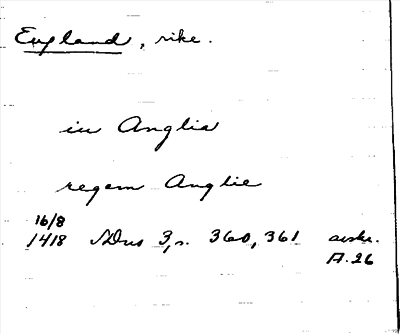 England, rike.
in Anglia
regem Anglie
16/8
1418 SDns 3, s. 360, 361 avskr.
A.26